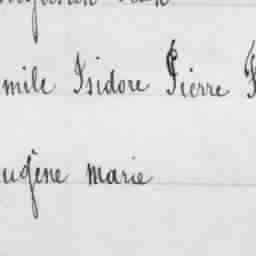 mile Isidore Pierre
ugène marie